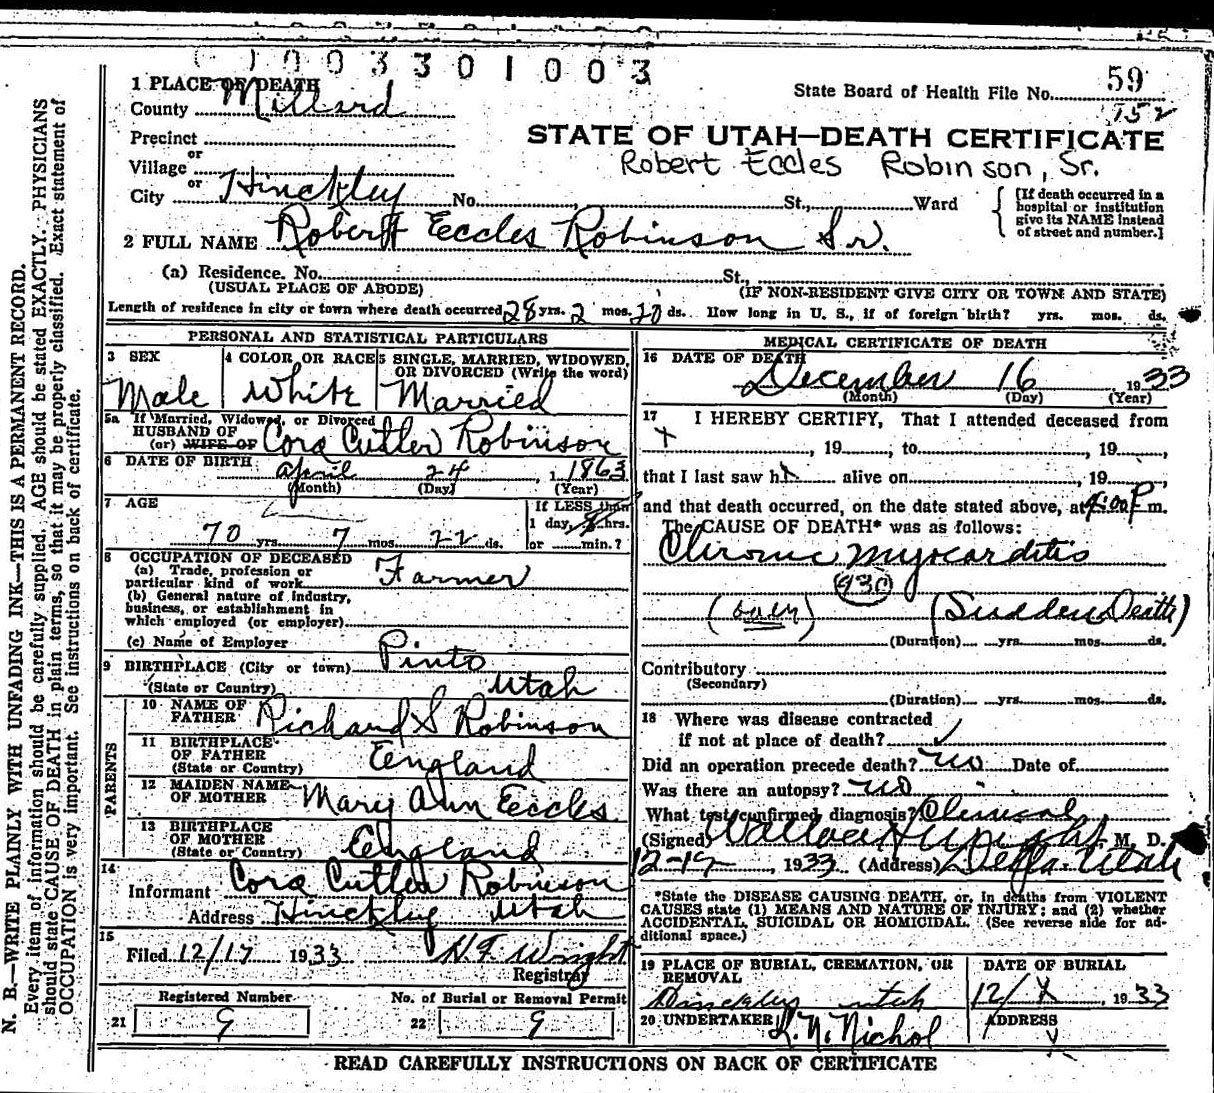 1003301003
1 PLACE OF DEATH
County Millard
State Board of Health File No. 59
752
Precinct
or
Village
or
City Hinckley No. St., Ward
STATE OF UTAH—DEATH CERTIFICATE
Robert Eccles Robinson, Sr.
[If death occurred in a
hospital or institution
give its NAME instead
of street and number.]
2 FULL NAME Robert Eccles Robinson Sr.
(a) Residence. No. St.,
(USUAL PLACE OF ABODE) (IF NON-RESIDENT GIVE CITY OR TOWN AND STATE)
Length of residence in city or town where death occurred 28 yrs. 2 mos. 20 ds. How long in U. S., if of foreign birth? yrs. mos. ds.
PERSONAL AND STATISTICAL PARTICULARS
3 SEX 4 COLOR OR RACE 5 SINGLE, MARRIED, WIDOWED,
OR DIVORCED (Write the word)
Male White Married
5a If Married, Widowed, or Divorced
HUSBAND OF
(or) WIFE OF Cora Cutler Robinson
6 DATE OF BIRTH April 24, 1 1863
(Month) (Day) (Year)
7 AGE If LESS than
1 day, hrs.
70 yrs. 7 mos. 22 ds. or min.?
8 OCCUPATION OF DECEASED
(a) Trade, profession or
particular kind of work Farmer
(b) General nature of industry,
business, or establishment in
which employed (or employer)
(c) Name of Employer
9 BIRTHPLACE (City or town) Pinto
(State or Country) Utah
PARENTS
10 NAME OF
FATHER Richard S Robinson
11 BIRTHPLACE
OF FATHER
(State or Country) England
12 MAIDEN NAME
OF MOTHER Mary Ann Eccles
13 BIRTHPLACE
OF MOTHER
(State or Country) England
14
Informant Cora Cutler Robinson
Address Hinckley Utah
15
Filed 12/17 1933 H. F. Wright
Registrar
Registered Number No. of Burial or Removal Permit
21 9 22 9
MEDICAL CERTIFICATE OF DEATH
16 DATE OF DEATH
December 16, 1933
(Month) (Day) (Year)
17 I HEREBY CERTIFY, That I attended deceased from
x
, 19 , to , 19 ,
that I last saw h alive on , 19
and that death occurred, on the date stated above, at P m.
The CAUSE OF DEATH* was as follows:
Chronic myocarditis
930
(over) (Sudden Death)
(Duration) yrs. mos. ds.
Contributory
(Secondary)
(Duration) yrs. mos. ds.
18 Where was disease contracted
if not at place of death?
Did an operation precede death? no Date of
Was there an autopsy? no
What test confirmed diagnosis? Clinical
(Signed) Wallace H Wright, M. D.
12-19, 1933 (Address) Delta-Utah
*State the DISEASE CAUSING DEATH, or, in deaths from VIOLENT
CAUSES state (1) MEANS AND NATURE OF INJURY; and (2) whether
ACCIDENTAL, SUICIDAL OR HOMICIDAL. (See reverse side for ad-
ditional space.)
19 PLACE OF BURIAL, CREMATION, OR
REMOVAL DATE OF BURIAL
Hinckley utah 12/ , 1933
20 UNDERTAKER ADDRESS
Nichol
READ CAREFULLY INSTRUCTIONS ON BACK OF CERTIFICATE
N. B.—WRITE PLAINLY WITH UNFADING INK—THIS IS A PERMANENT RECORD.
Every item of information should be carefully supplied. AGE should be stated EXACTLY. PHYSICIANS
should state CAUSE OF DEATH in plain terms, so that it may be properly classified. Exact statement of
OCCUPATION is very important. See instructions on back of certificate.